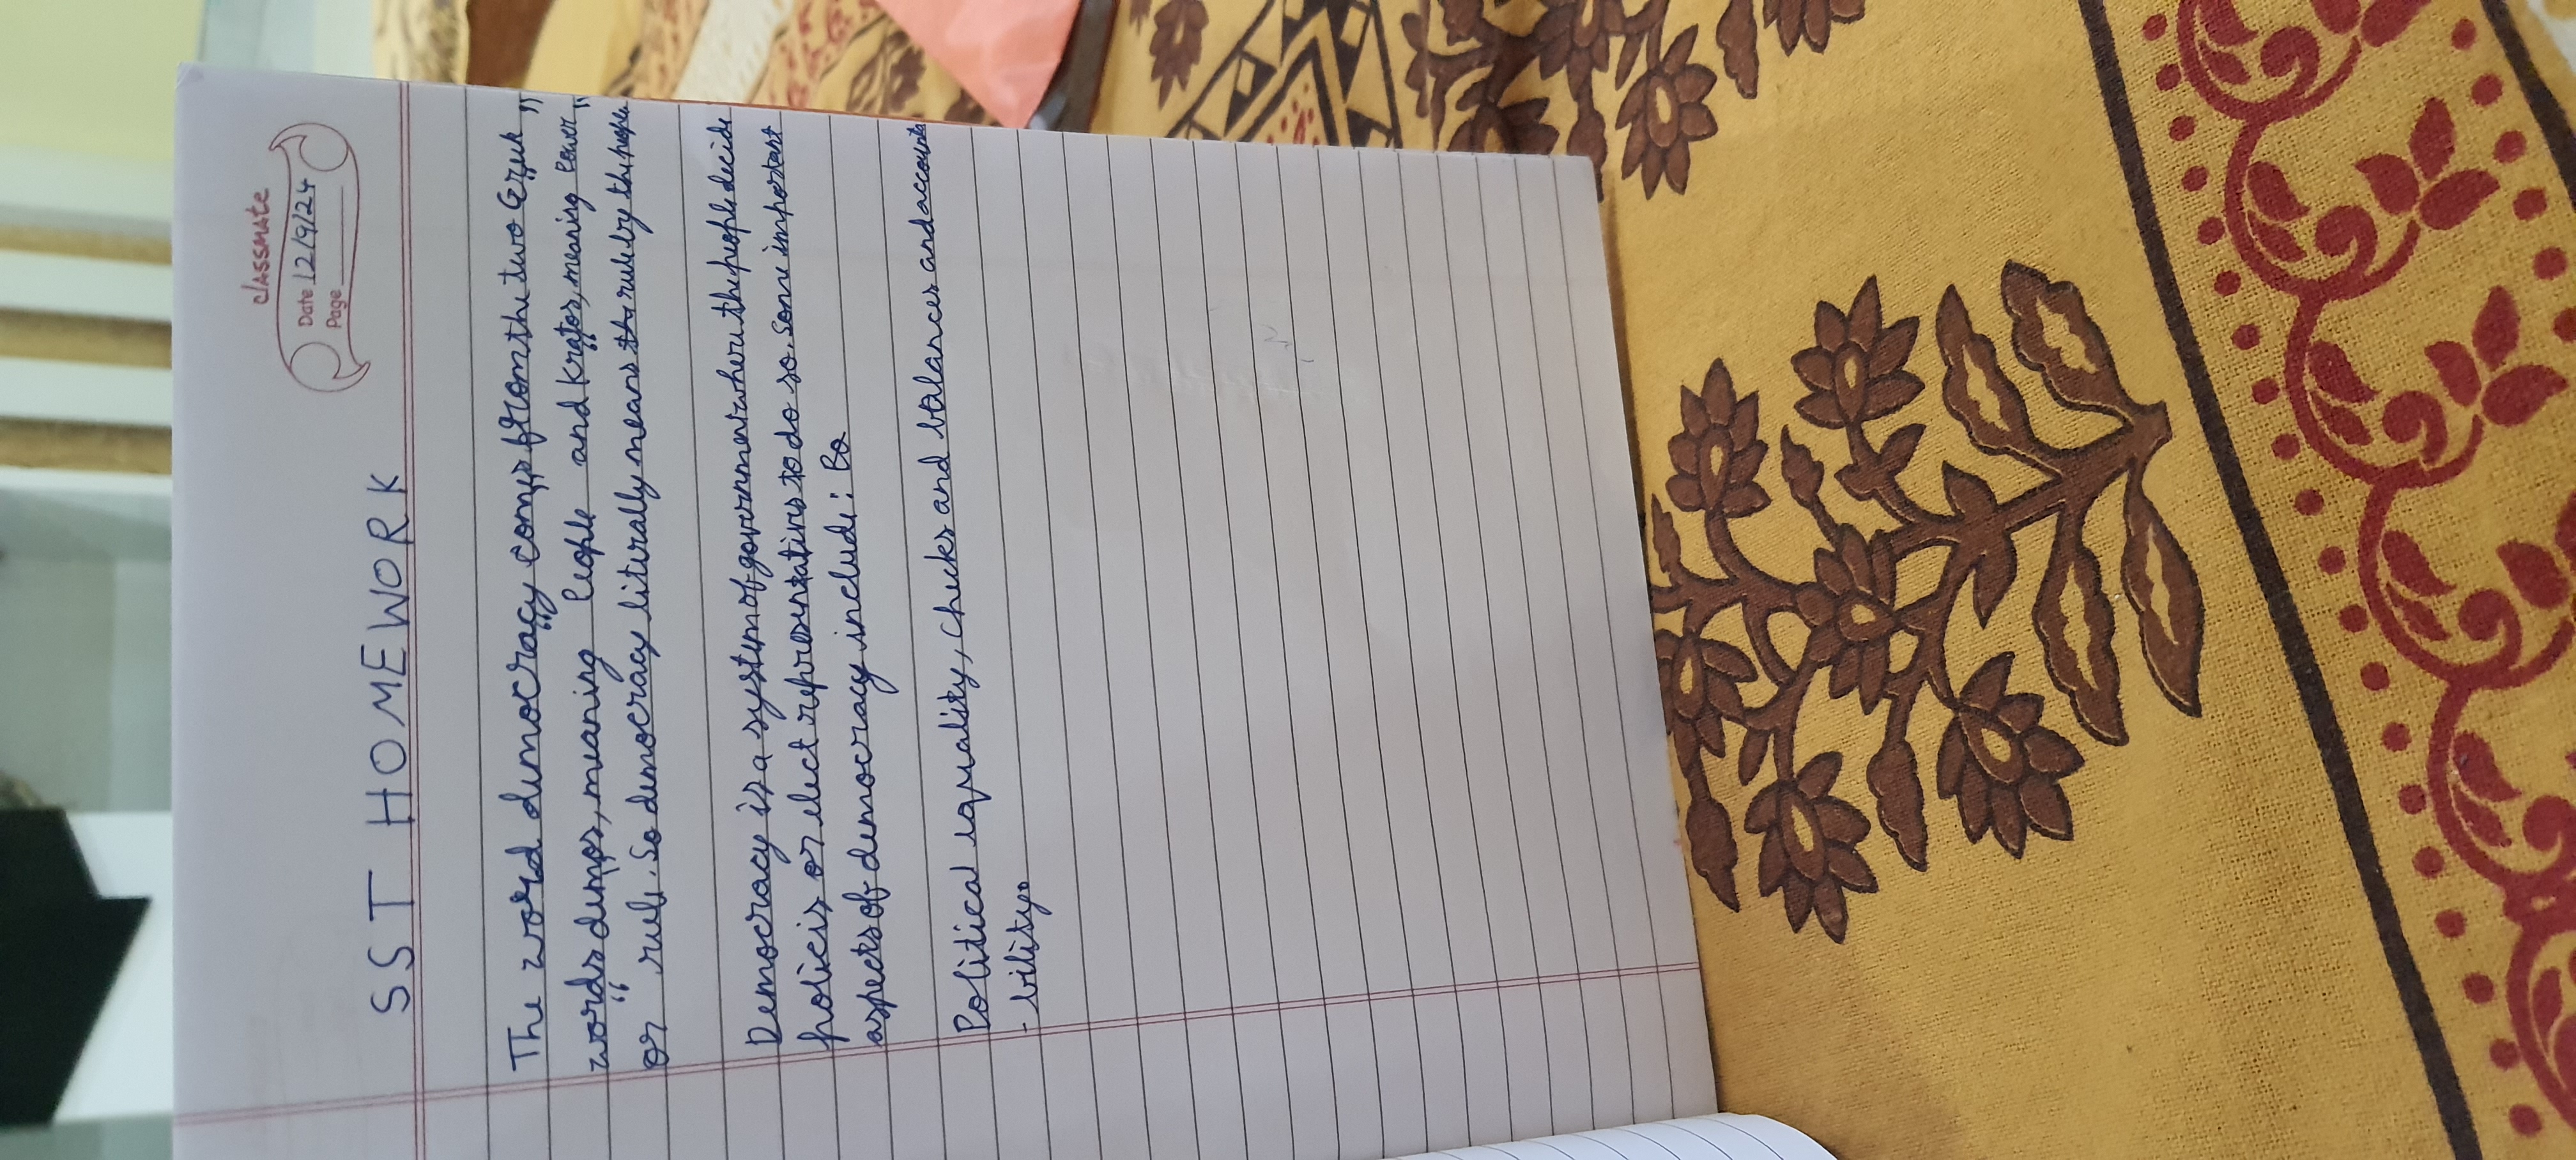 classmate
Date 12/9/24
Page
SST HOMEWORK
The word democracy comes from the two Greek
words demos, meaning "People" and kratos, meaning "Power"
or "rule". So democracy literally means the rule by the people
Democracy is a system of government where the people decide
policies or elect representatives to do so. Some important
aspects of democracy include: Bo
Political equality, checks and balances and accounta
-bility.